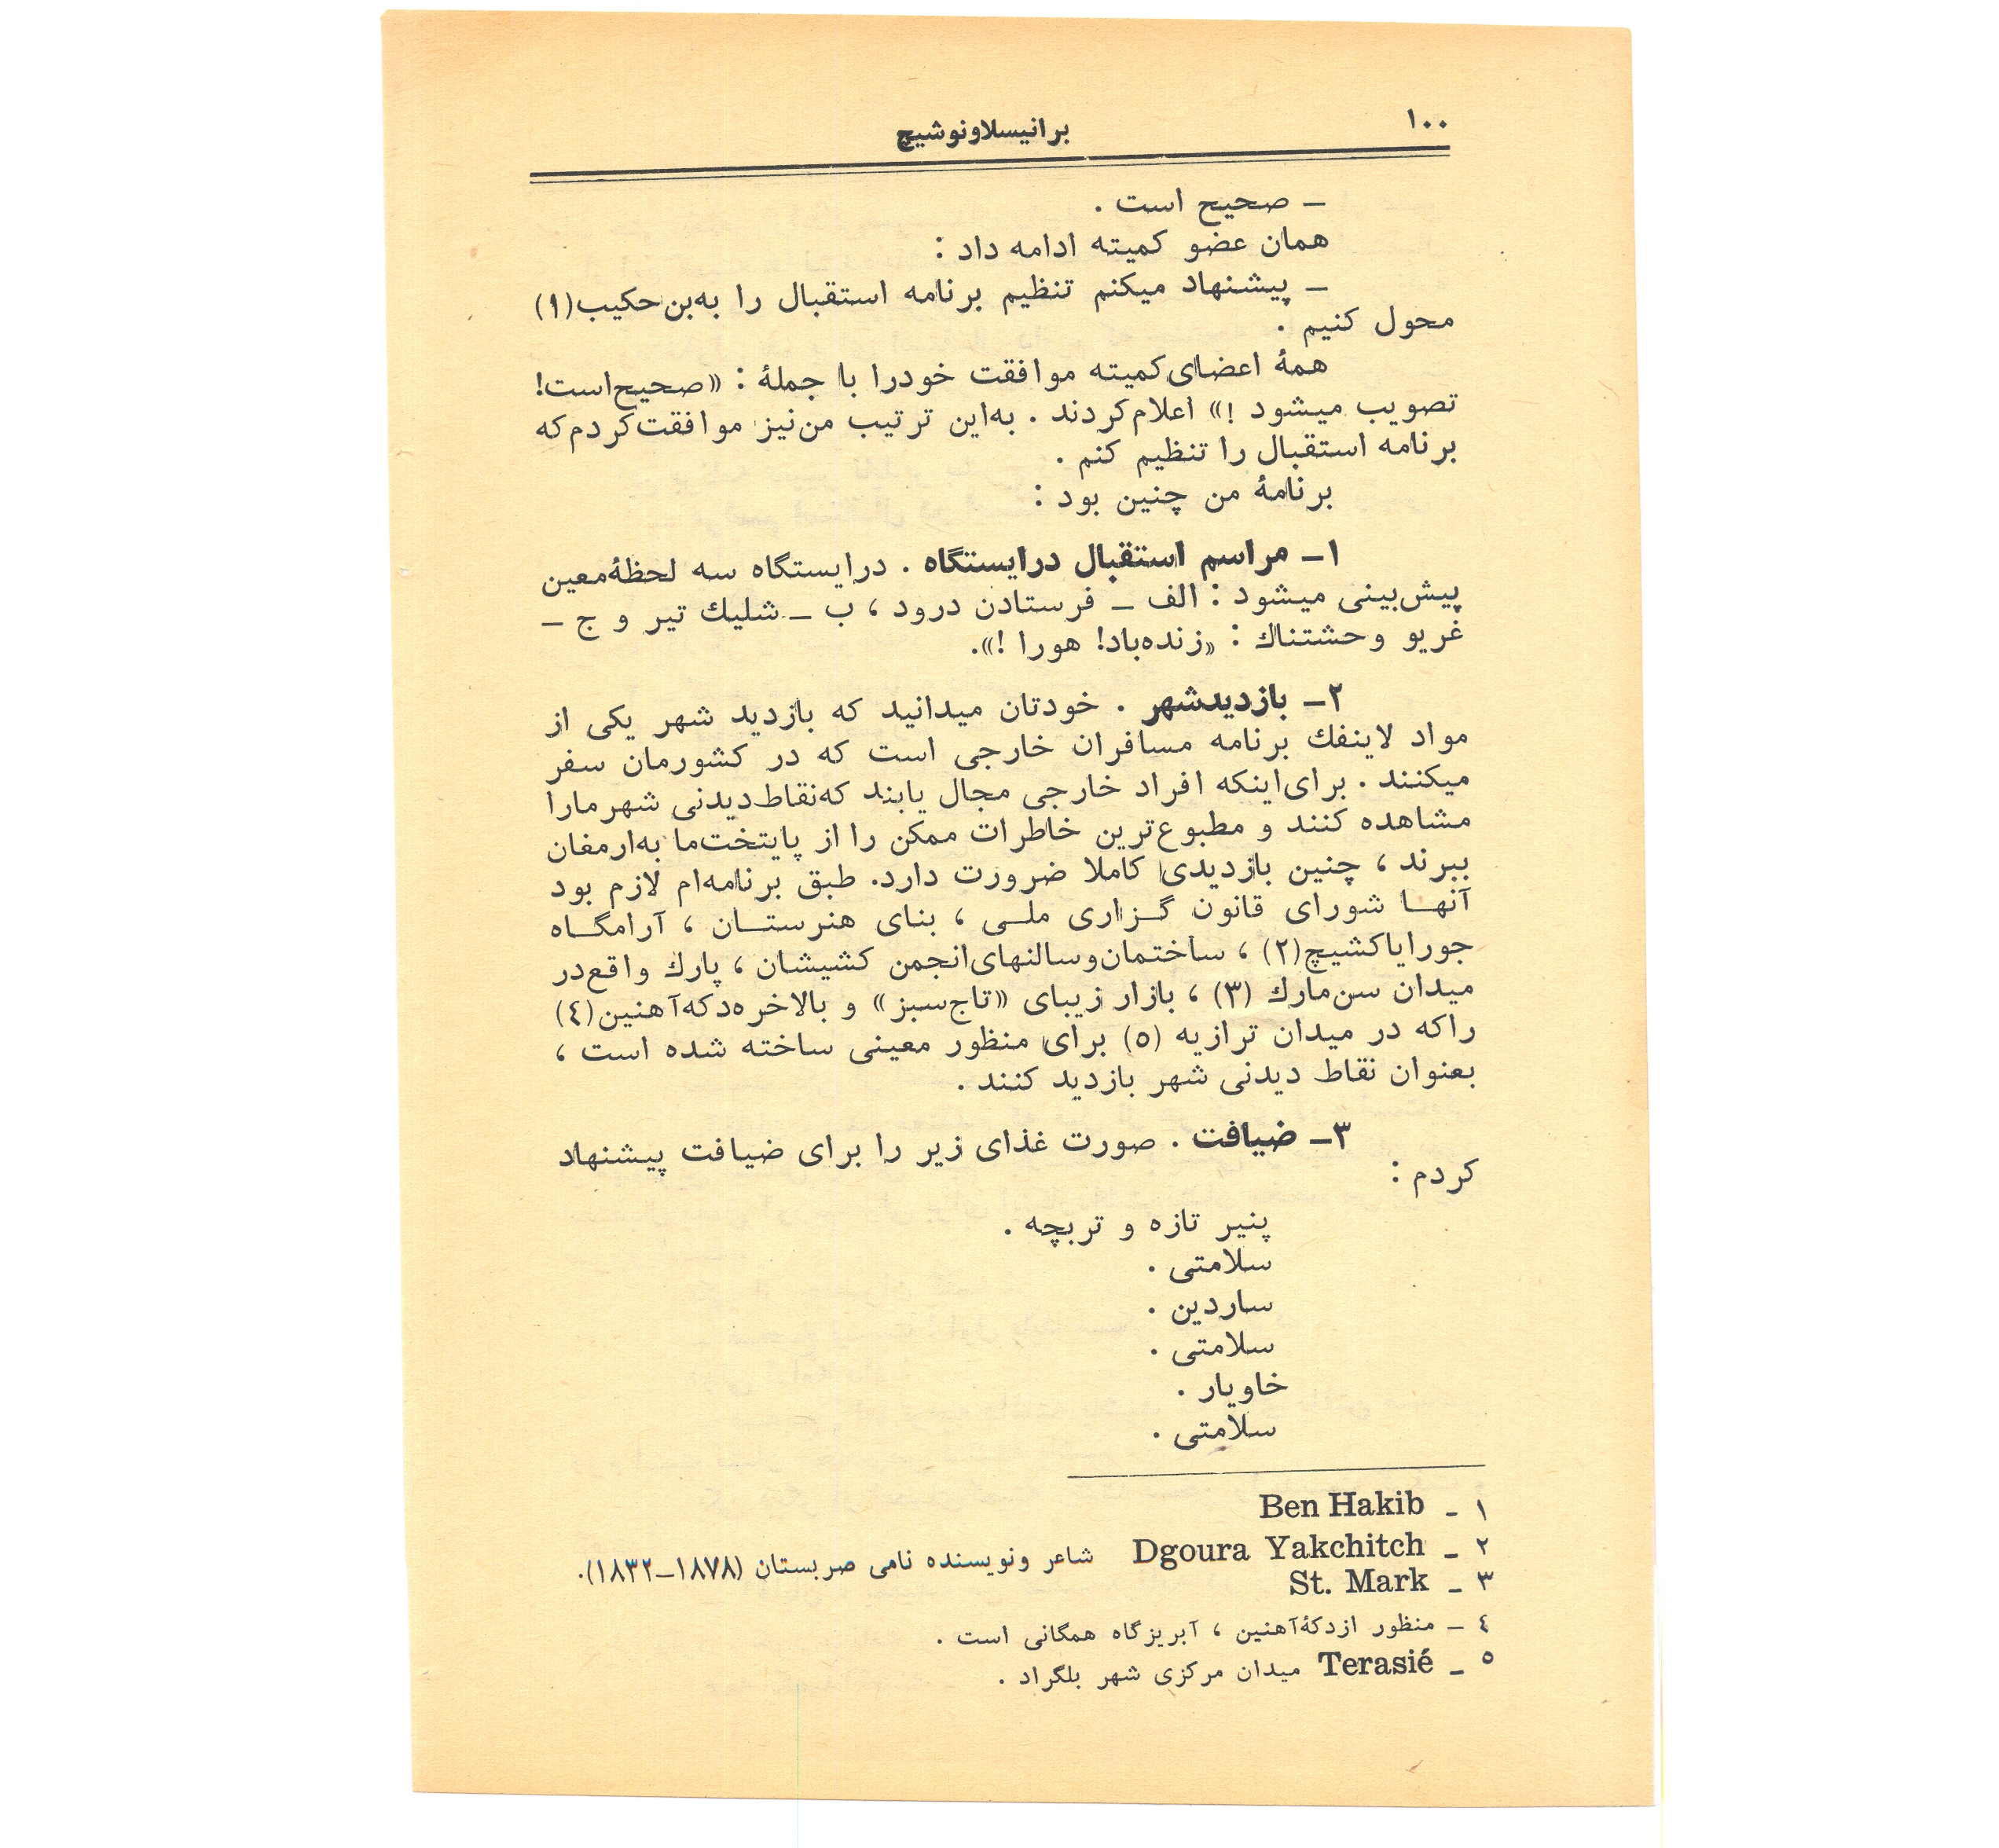 ۱۰۰
برانیسلاونوشیچ
ـ صحیح است .
همان عضو کمیته ادامه داد :
ـ پیشنهاد میکنم تنظیم برنامه استقبال را به‌بن‌حکیب(۱)
محول کنیم .
همهٔ اعضای‌کمیته موافقت خودرا با جملهٔ : «صحیح‌است!
تصویب میشود !» اعلام‌کردند . به‌این ترتیب من‌نیز موافقت‌کردم‌که
برنامه استقبال را تنظیم کنم .
برنامهٔ من چنین بود :
۱ـ مراسم استقبال درایستگاه . درایستگاه سه لحظهٔ‌معین
پیش‌بینی میشود : الف ـ فرستادن درود ، ب ـ شلیك تیر و ج ـ
غریو وحشتناك : «زنده‌باد! هورا !».
۲ـ بازدیدشهر . خودتان میدانید که بازدید شهر یکی از
مواد لاینفك برنامه مسافران خارجی است که در کشورمان سفر
میکنند . برای‌اینکه افراد خارجی مجال یابند که‌نقاط‌دیدنی شهرمارا
مشاهده کنند و مطبوع‌ترین خاطرات ممکن را از پایتخت‌ما به‌ارمغان
ببرند ، چنین بازدیدی کاملا ضرورت دارد. طبق برنامه‌ام لازم بود
آنهـا شورای قانون گـزاری ملـی ، بنای هنرستـان ، آرامگـاه
جورایاکشیچ(۲) ، ساختمان‌وسالنهای‌انجمن کشیشان ، پارك واقع‌در
میدان سن‌مارك (۳) ، بازار زیبای «تاج‌سبز» و بالاخره‌دکه‌آهنین(٤)
راکه در میدان ترازیه (٥) برای منظور معینی ساخته شده است ،
بعنوان نقاط دیدنی شهر بازدید کنند .
۳ـ ضیافت . صورت غذای زیر را برای ضیافت پیشنهاد
کردم :
پنیر تازه و تربچه .
سلامتی .
ساردین .
سلامتی .
خاویار .
سلامتی .
۱ ـ Ben Hakib
۲ ـ Dgoura Yakchitch شاعر ونویسنده نامی صربستان (۱۸۷۸ـ۱۸۳۲).
۳ ـ St. Mark
٤ ـ منظور ازدکهٔ‌آهنین ، آبریزگاه همگانی است .
٥ ـ Terasié میدان مرکزی شهر بلگراد .